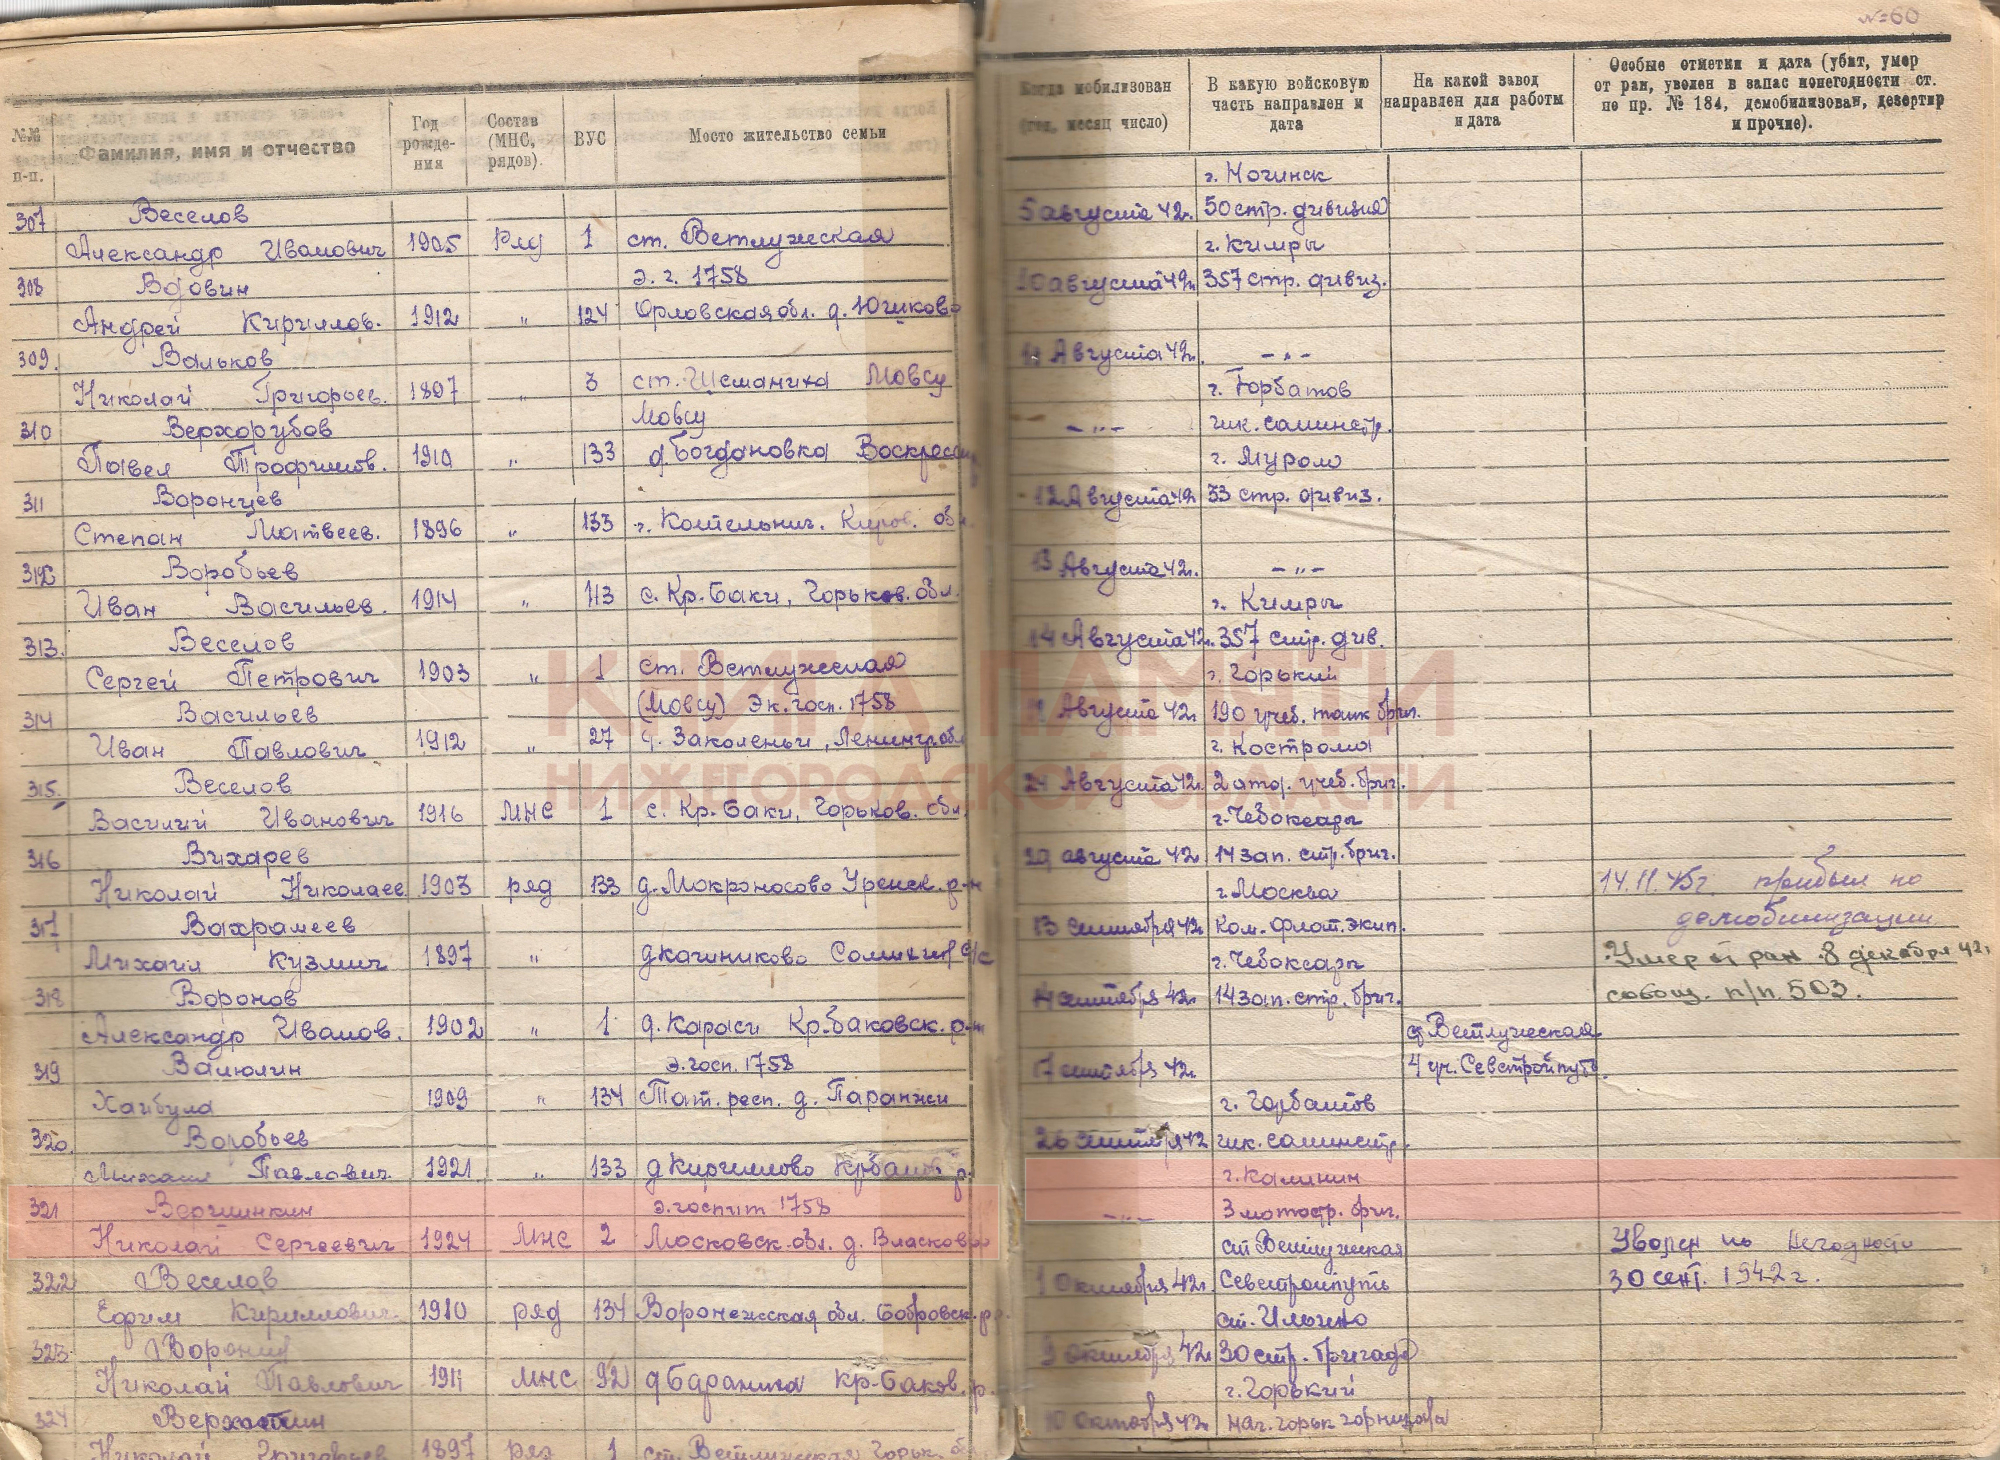 № 60
№№ п-п.
Фамилия, имя и отчество
Год рожде- ния
Состав (МНС, рядов).
ВУС
Место жительство семьи
Когда мобилизован (год, месяц число)
В какую войсковую часть направлен и дата
На какой завод направлен для работы и дата
Особые отметки и дата (убит, умер от ран, уволен в запас понегодности ст. по пр. № 184, демобилизован, дезертир и прочие).
307 Веселов
Александр Иванович 1905 ряд 1 ст. Ветлужская
308 Вдовин э. г. 1758
Андрей Кириллов. 1912 " 124 Орловская обл. д. Юшково
309. Вальков
Николай Григорьев. 1897 " 3 ст. Шеманиха Мовсу
310 Верхорубов Мовсу
Павел Трофимов. 1910 " 133 д Богдановка
311 Воронцев
Степан Матвеев. 1896 " 133 г. Котельнич. Киров. обл.
312 Воробьев
Иван Васильев. 1914 " 113 с. Кр. Баки, Горьков. обл.
313. Веселов
Сергей Петрович 1903 " 1 ст. Ветлужская
314 Васильев (Мовсу) Эк. госп. 1758
Иван Павлович 1912 " 27 Ленингр обл
315. Веселов
Василий Иванович 1916 МНС 1 с. Кр. Баки, Горьков. обл.
316 Вихарев
Николай Николаев 1903 ряд 133 д. Мокроносово Уренск. р-н
317 Вахрамеев
Михаил Кузмич 1897 " с/с
318 Воронов
Александр Иванов. 1902 " 1 д. Караси Кр. Баковск. р-н
319 Валюлин э. госп. 1758
Хайбула 1909 " 134 Тат. респ. д. Паранжи
320. Воробьев
Михаил Павлович 1921 " 133 д Кириллово
321 Вершинкин э. госпит 1758
Николай Сергеевич 1924 МНС 2 Московск. обл. д. Власково
322 Веселов
Ефим Кириллович 1910 ряд 134 Воронежская обл. Бобровск. р
323 Воронин
Николай Павлович 1911 МНС 92 д Бараниха Кр-Баков. р.
324 Верхотин
Николай Григорьев 1897 ряд 1 ст. Ветлужская Горьк. обл.
г. Ногинск
5 августа 42г. 50 стр. дивизия
г. Кимры
10 августа 42г. 357 стр. дивиз.
11 Августа 42г. – " –
г. Горбатов
– " –
г. Муром
12 Августа 42 33 стр. дивиз.
13 Августа 42г. – " –
г. Кимры
14 Августа 42г. 357 стр. див.
г. Горький
Августа 42г. 190 учеб. танк бриг.
г. Кострома
24 Августа 42г. учеб. бриг.
г. Чебоксары
29 августа 42 14 зап. стр. бриг.
г. Москва 14.11.45г. прибыл по
13 сентября 42 Ком. флот. экип. демобилизации
г. Чебоксары Умер от ран 8 декабря 42г.
14 сентября 42г. 14 зап. стр. бриг. сообщ. п/п. 503.
ст Ветлужская
17 сентября 42г. 4 уч. Севстройпуть.
г. Горбатов
26 сентября 42
г. Калинин
– " – 3 мотостр. бриг.
ст Ветлужская Уволен по негодности
1 Октября 42г. Севстройпуть 30 сент. 1942 г.
ст. Ильино
9 октября 42г. 30 стр. бригада
г. Горький
10 октября 42г.
КНИГА ПАМЯТИ
НИЖЕГОРОДСКОЙ ОБЛАСТИ